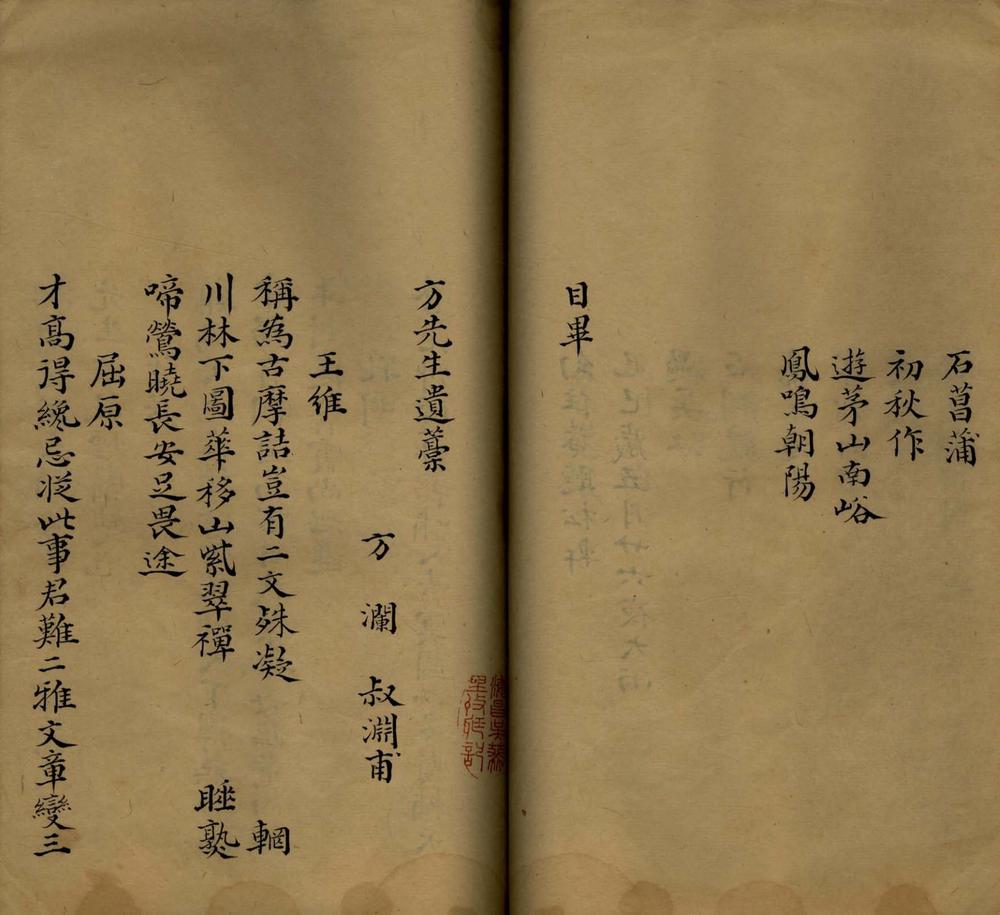 石菖蒲
初秋作
遊茅山南峪
鳳鳴朝陽
目畢
方先生遺藁
方瀾叔淵甫
王維
稱為古摩詰豈有二文殊凝 輞
川林下圖華移山紫翠禪 睡熟
啼鶯曉長安足畏途
屈原
才髙得纔忌从此事君難二雅文章變三